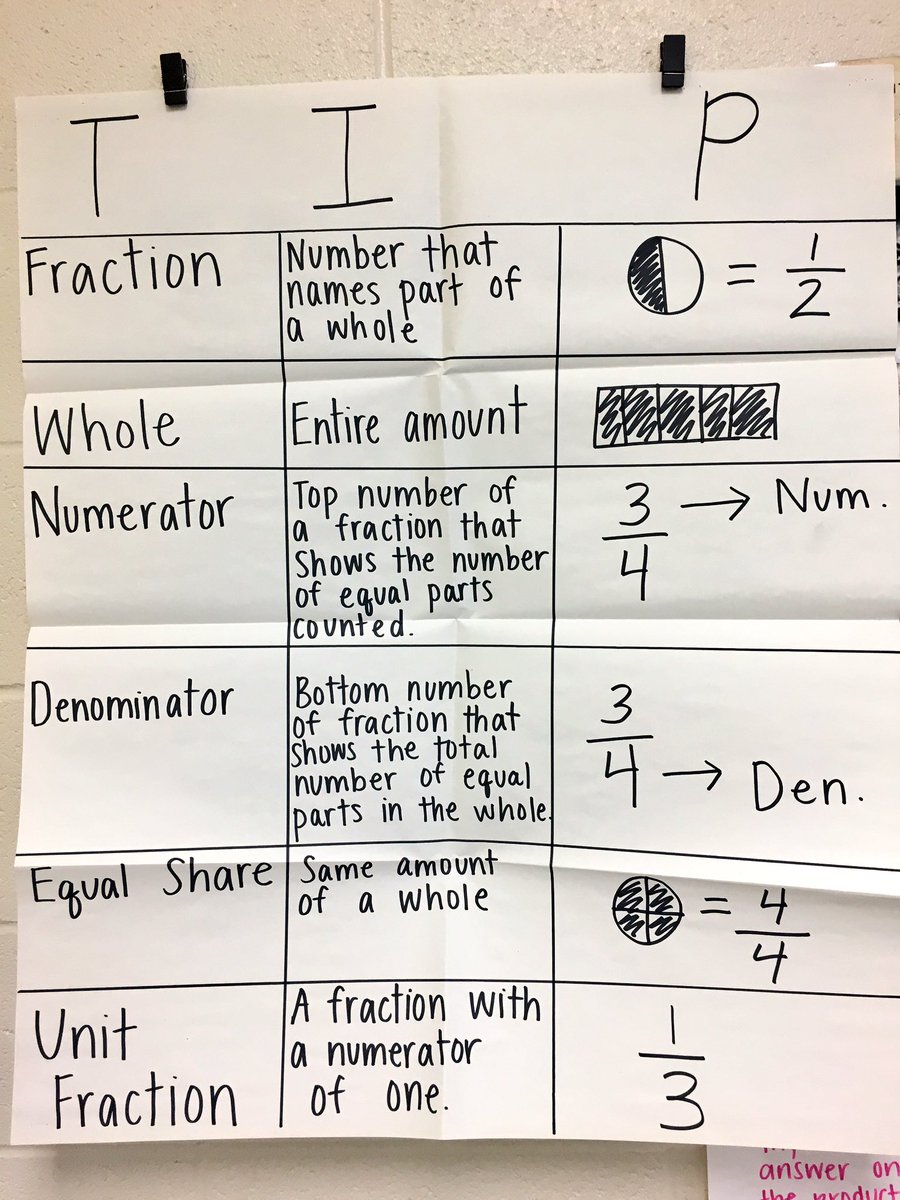 T I P
Fraction
Number that
names part of
a whole
= 1/2
Whole
Entire amount
Numerator
Top number of
a fraction that
shows the number
of equal parts
counted.
3/4 → Num.
Denominator
Bottom number
of fraction that
shows the total
number of equal
parts in the whole.
3/4 → Den.
Equal Share
Same amount
of a whole
= 4/4
Unit
Fraction
A fraction with
a numerator
of one.
1/3
answer on
the product